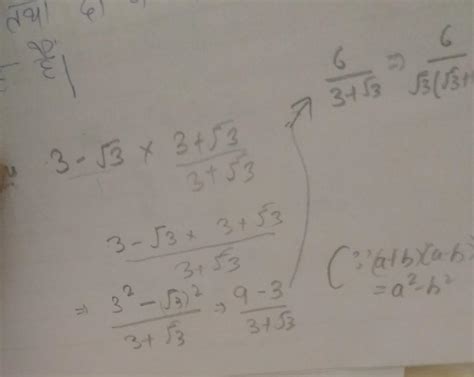 तथा
3 - √3 × (3+√3)/(3+√3)
(3 - √3 × 3+√3)/(3+√3)
⇒ (3² - (√3)²)/(3+√3) ⇒ (9-3)/(3+√3)
6/(3+√3) ⇒ 6/(√3(√3+
(∵ (a+b)(a-b)
= a²-b²